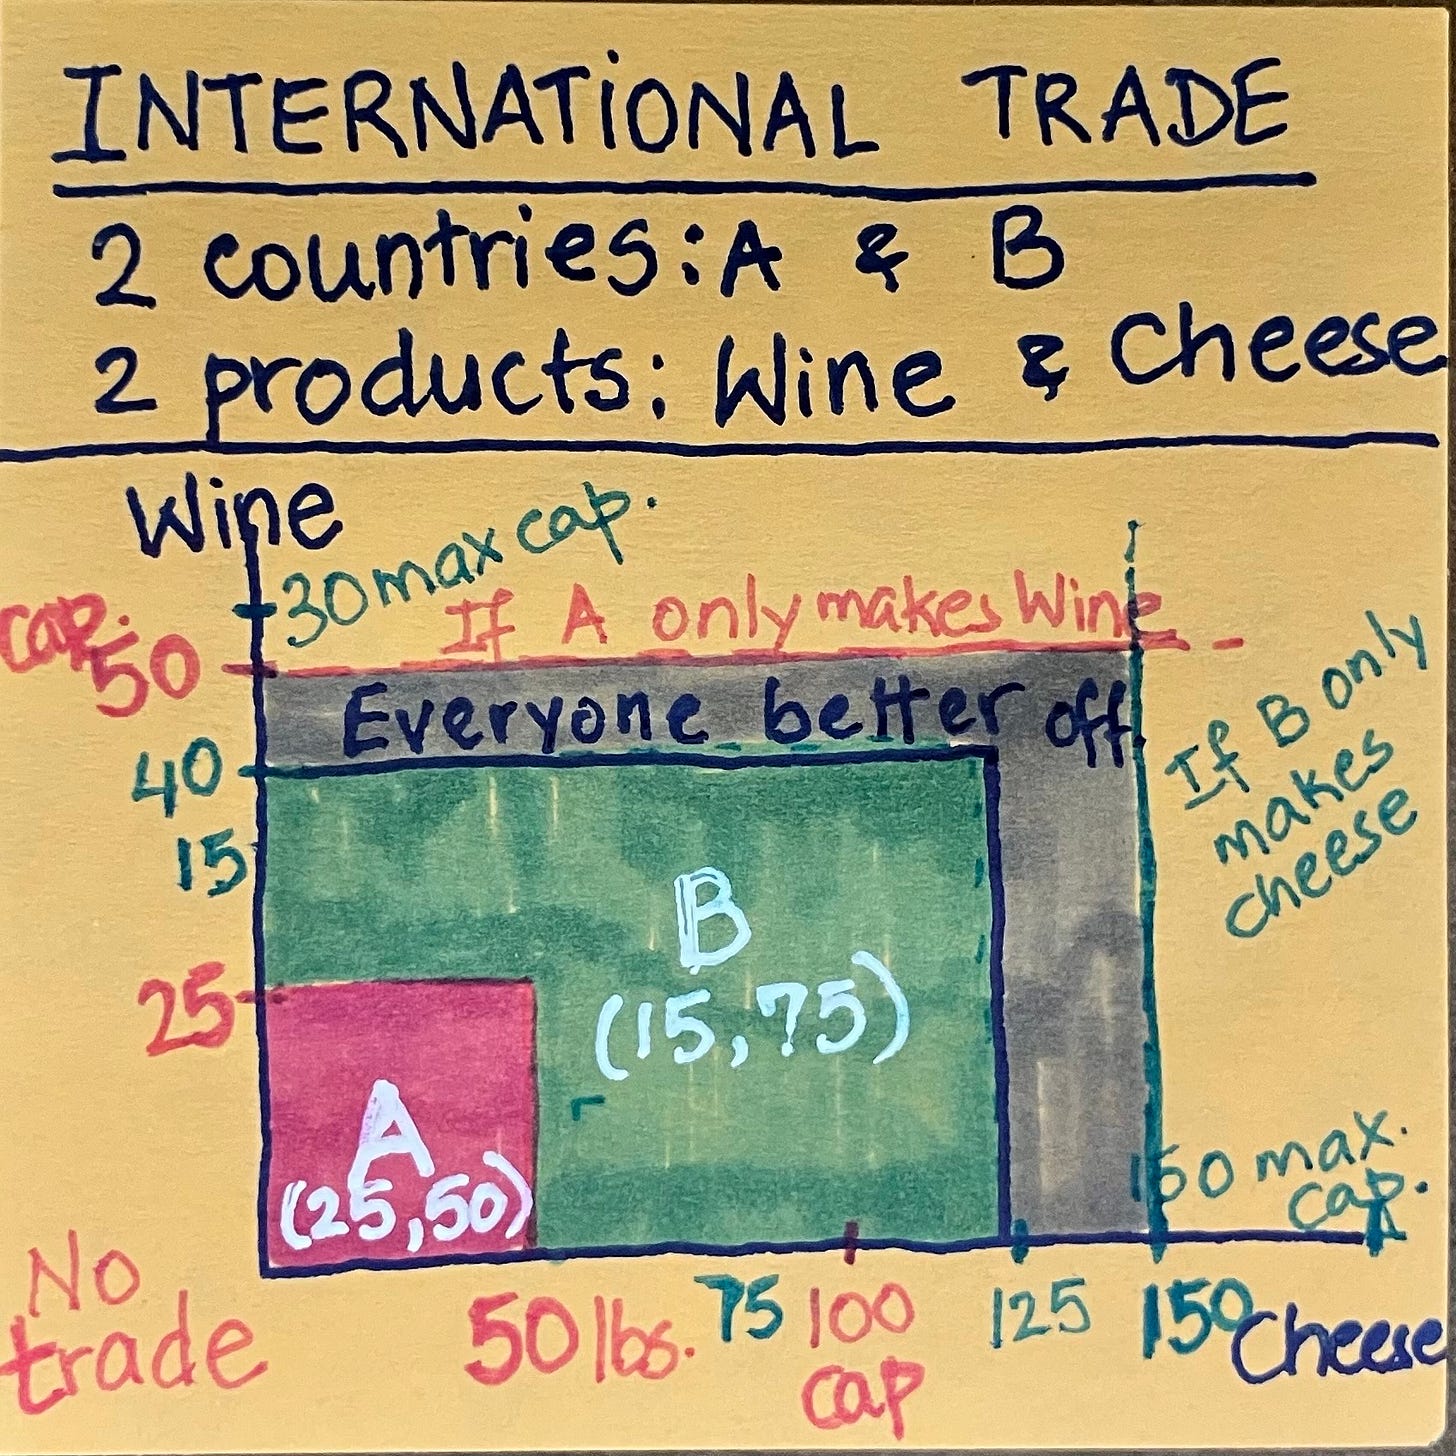 INTERNATiONAL TRADE
2 countries: A & B
2 products: Wine & Cheese
Wine
30 max cap.
If A only makes Wine
cap.
50
Everyone better off
If B only
makes
cheese
40
15
B
(15,75)
25
A
(25,50)
150 max.
cap.
No
trade
50 lbs.
75
100
cap
125
150
Cheese